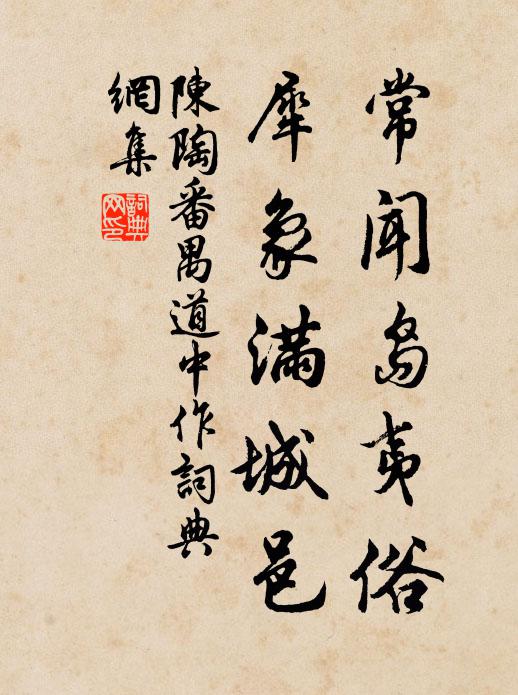 常闻岛夷俗
犀象满城邑
陳陶番禺道中作詞典
網集
詞典
网印